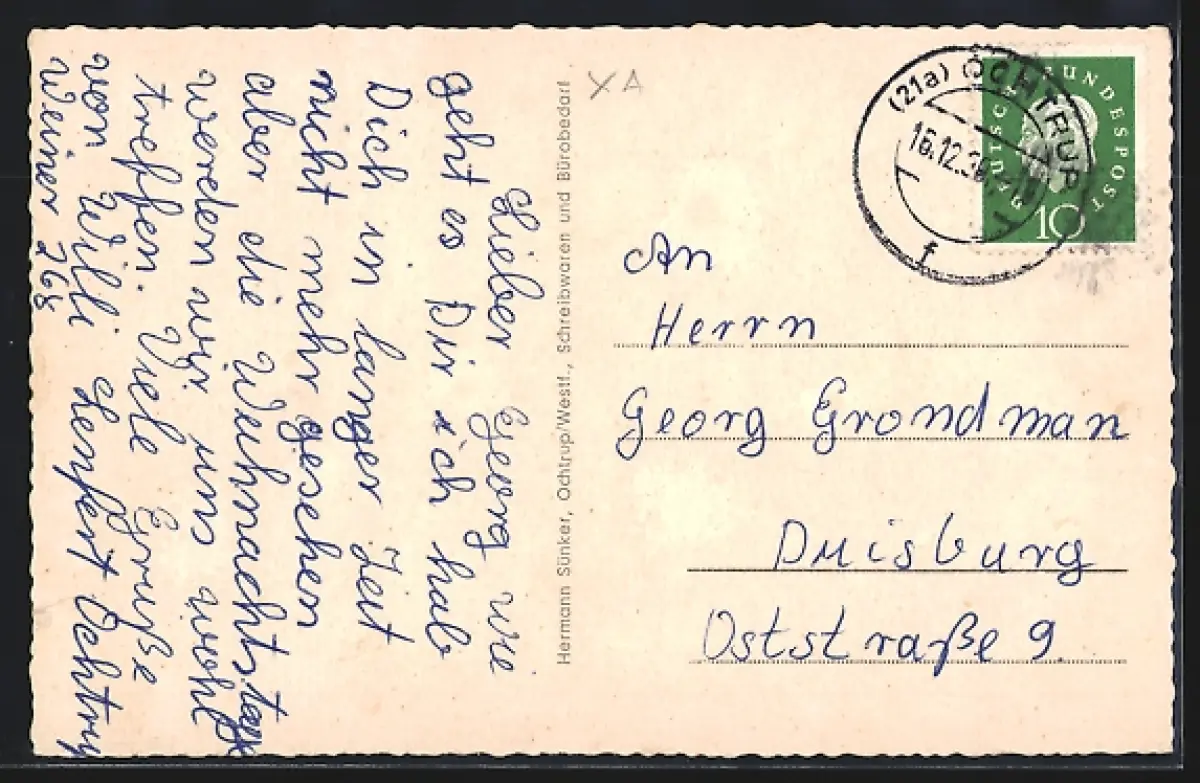 Lieber Georg wie
geht es Dir ich hab
Dich in langer Zeit
nicht mehr gesehen
aber die Weihnachtstage
werden wir uns wohl
treffen. Viele Grüße
von Willi Lenfert Ochtrup
Weiner 268
Hermann Sünker, Ochtrup/Westf., Schreibwaren und Bürobedarf
XA
(21a) OCHTRUP
16.12.
f
DEUTSCHE BUNDESPOST
10
An
Herrn
Georg Grondman
Duisburg
Oststraße 9.